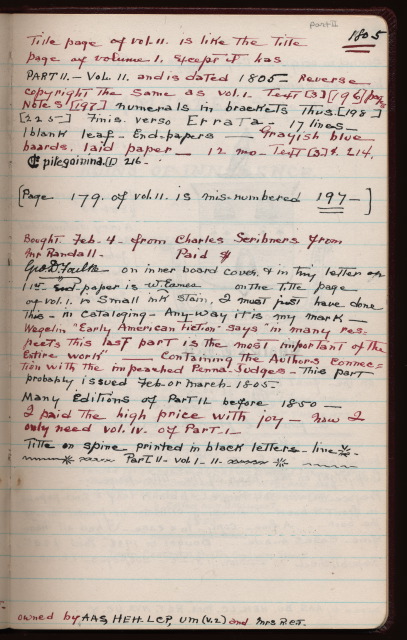 Part II
1805
Title page of vol. II. is like the Title
page of volume I. except it has
PART II. - Vol. II. and is dated 1805 - Reverse
copyright the same as vol. I. Text [3] [196] pages
Note s [197] numerals in brackets thus. [198]
[225] Finis. verso Errata - 17 lines -
1 blank leaf - End-papers - Grayish blue
boards. laid paper - 12 mo - Text [3] & 214.
pilegoinina. [1] 216 -
[Page 179. of vol. II. is mis-numbered 197 - ]
Bought. Feb. 4 - from Charles Scribners from
Mr Randall - Paid $
Geo. D. on inner board cover, & in tiny letter on
1st end paper is W. Eames on the Title page
of vol. 1. is Small ink stain, I must just have done
this - in cataloging - Any way it is my mark -
Wegelin "Early American Fiction" says "in many res-
pects this last part is the most important of the
Entire work" - Containing the Authors Connec-
tion with the impeached Penna-Judges - This part
probably issued Feb. or March - 1805 -
Many Editions of Part II before 1850 -
I paid the high price with joy - now I
only need vol. IV. of Part. I -
Title on spine printed in black letters - line
Part. II - vol. I - II -
owned by AAS, HEH. LCP, UM (v.2) and Mrs R.E.J.